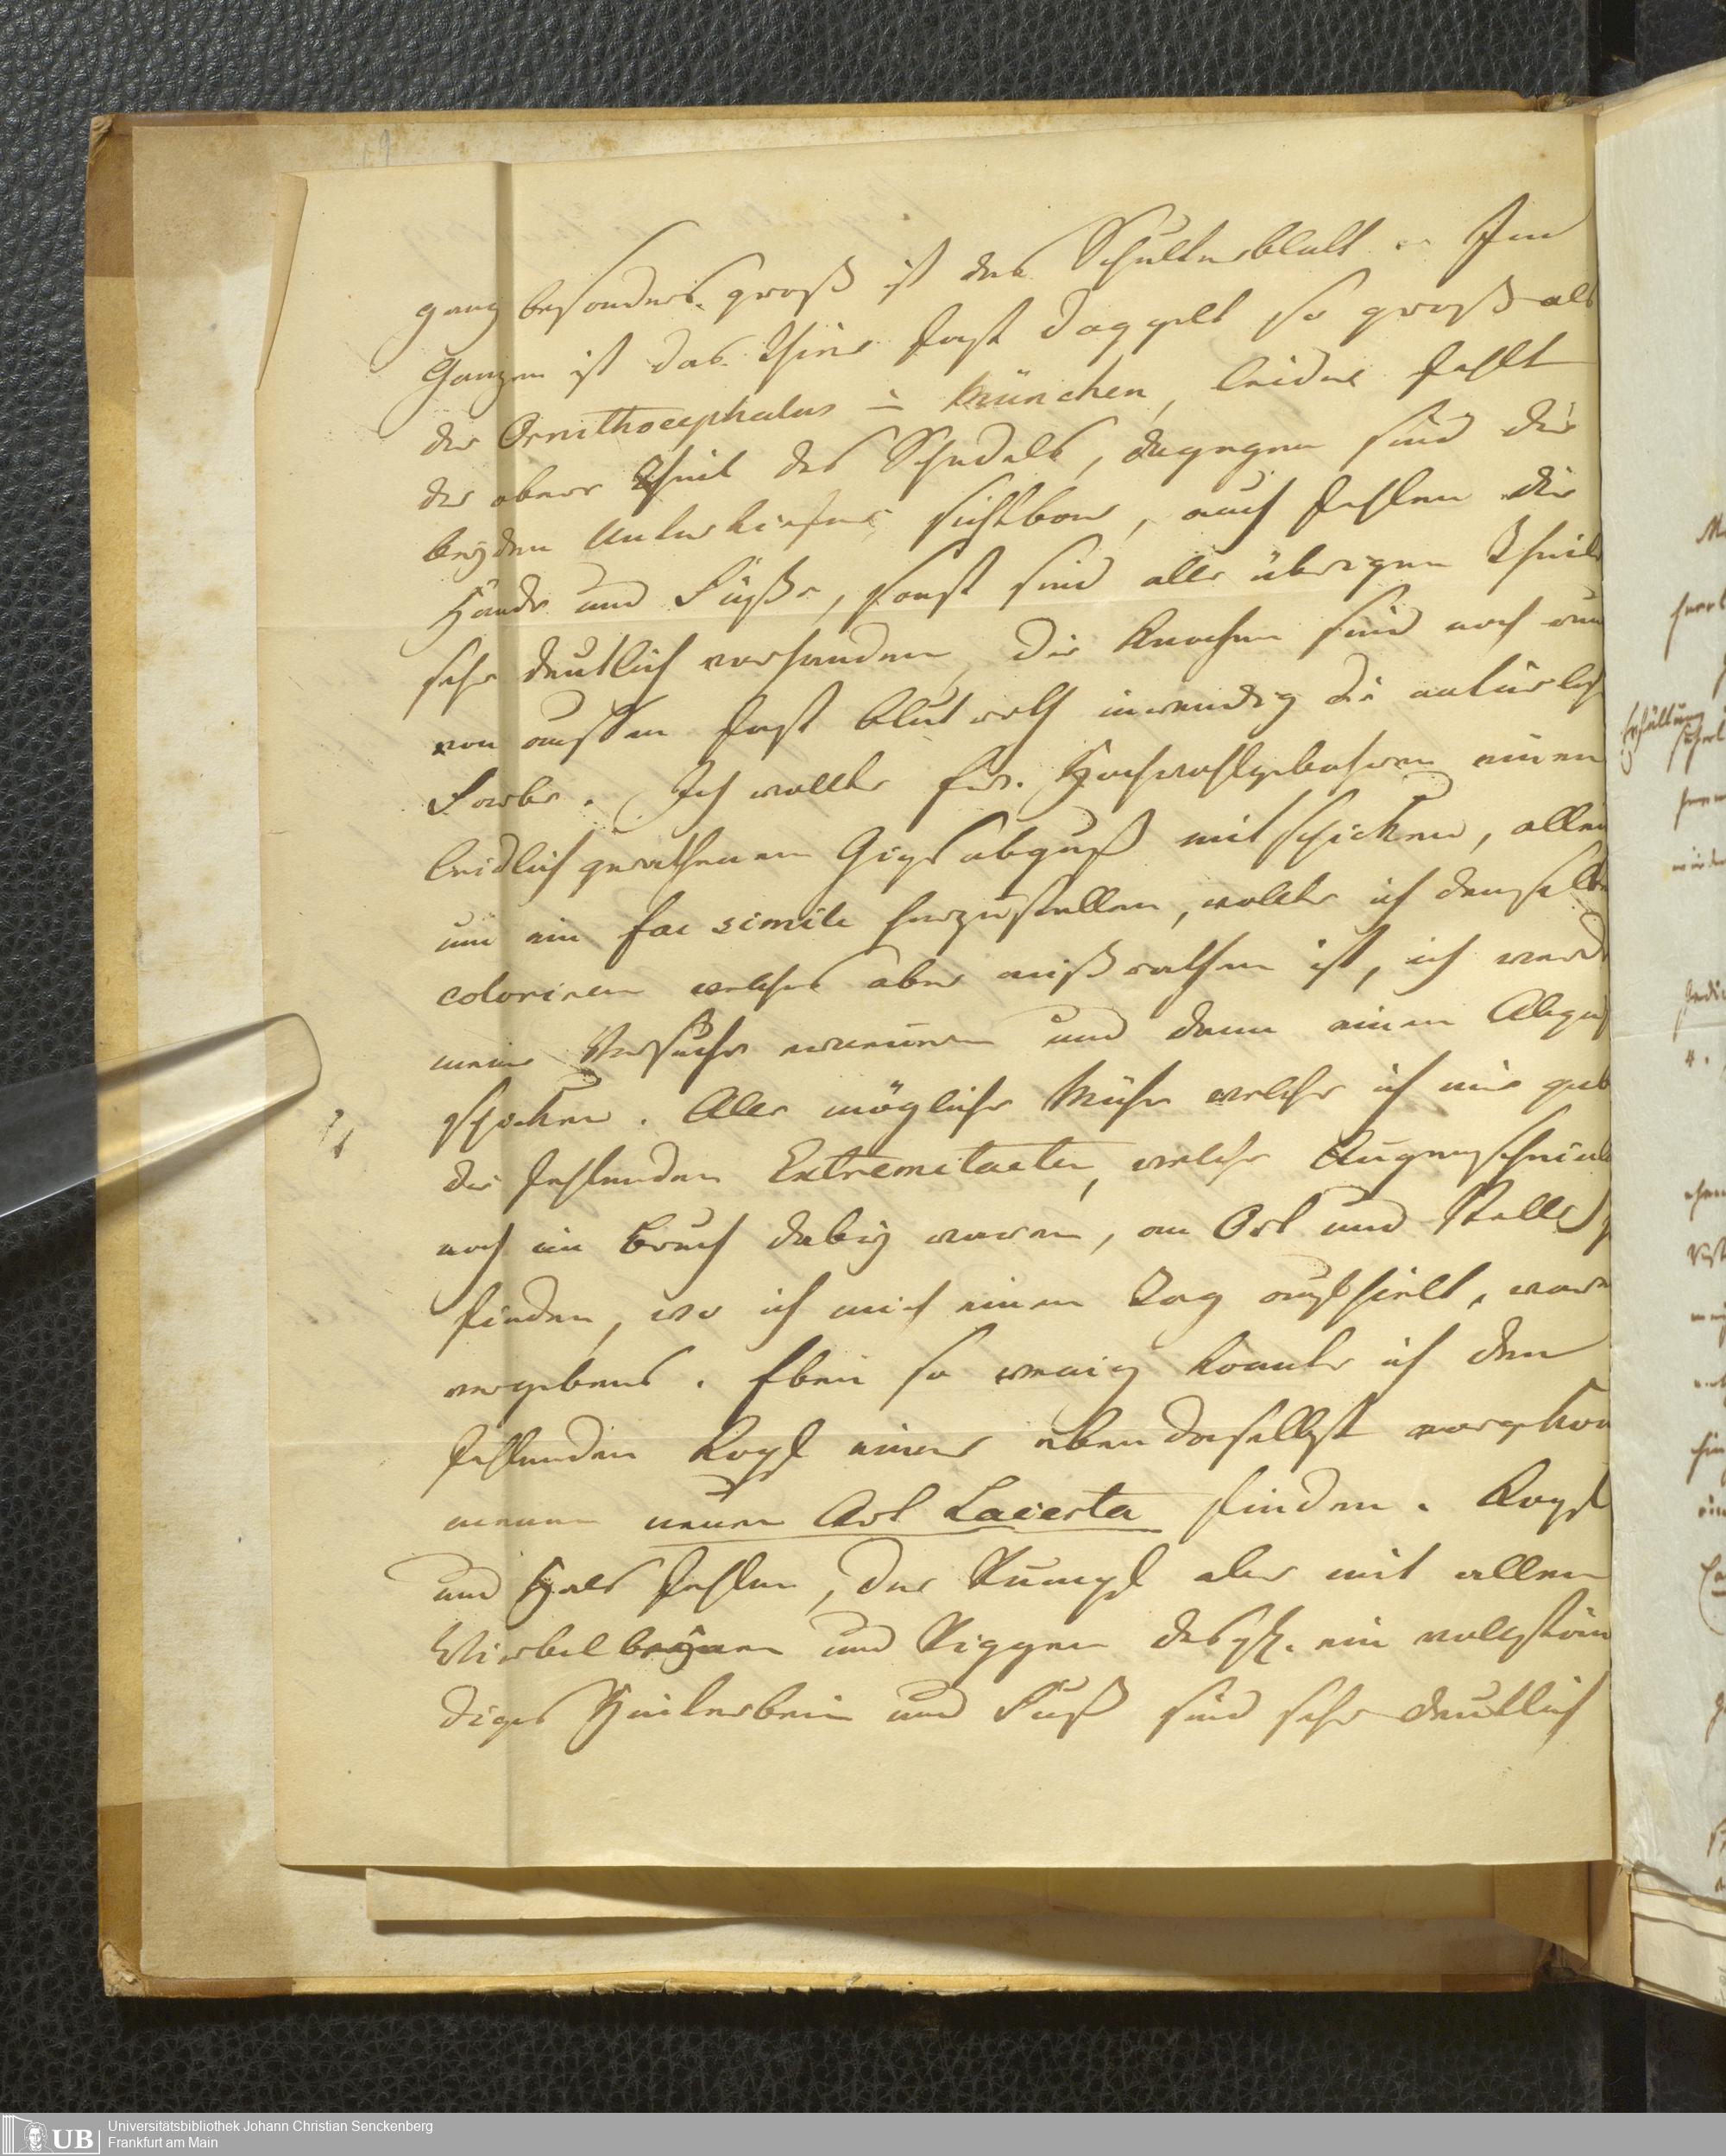 ganz besonders groß ist das Schulterblatt. Im
Ganzen ist das Thier fast doppelt so groß als
der Ornithocephalus in München, leider fehlt
der obere Theil des Schedels, dagegen sind die
beyden Unterkiefer sichtbar, auch fehlen die
Hände und Füße, sonst sind alle übrigen Theile
sehr deutlich vorhanden, die Knochen sind noch
von aussen fast blutroth inwendig die natürlich
Farbe. Ich wollte Ew. Hochwohlgebohren einen
leidlich gerathenen Gipsabguß mitschicken, allein
um ein fac simile herzustellen, wollte ich denselben
coloriren welches aber mißrathen ist, ich werde
meine Versuche erneuern und dann einen Abguß
schicken. Alle mögliche Mühe welche ich mir gab
die fehlenden Extremitaeten, welche Augenscheinl
noch im Bruch dabey waren, an Ort und Stelle z
finden, wo ich mich einen Tag aufhielt, war
vergebens. Eben so wenig konnte ich den
fehlenden Kopf einer ebendaselbst vorgekom
menen neuen Art Lacerta finden. Kopf
und Hals fehlen, der Rumpf aber mit allen
Wirbelbeynen und Rippen desgl. ein vollstän
diges Hinterbein und Fuß sind sehr deutlich
Erhaltung
UB
Universitätsbibliothek Johann Christian Senckenberg
Frankfurt am Main